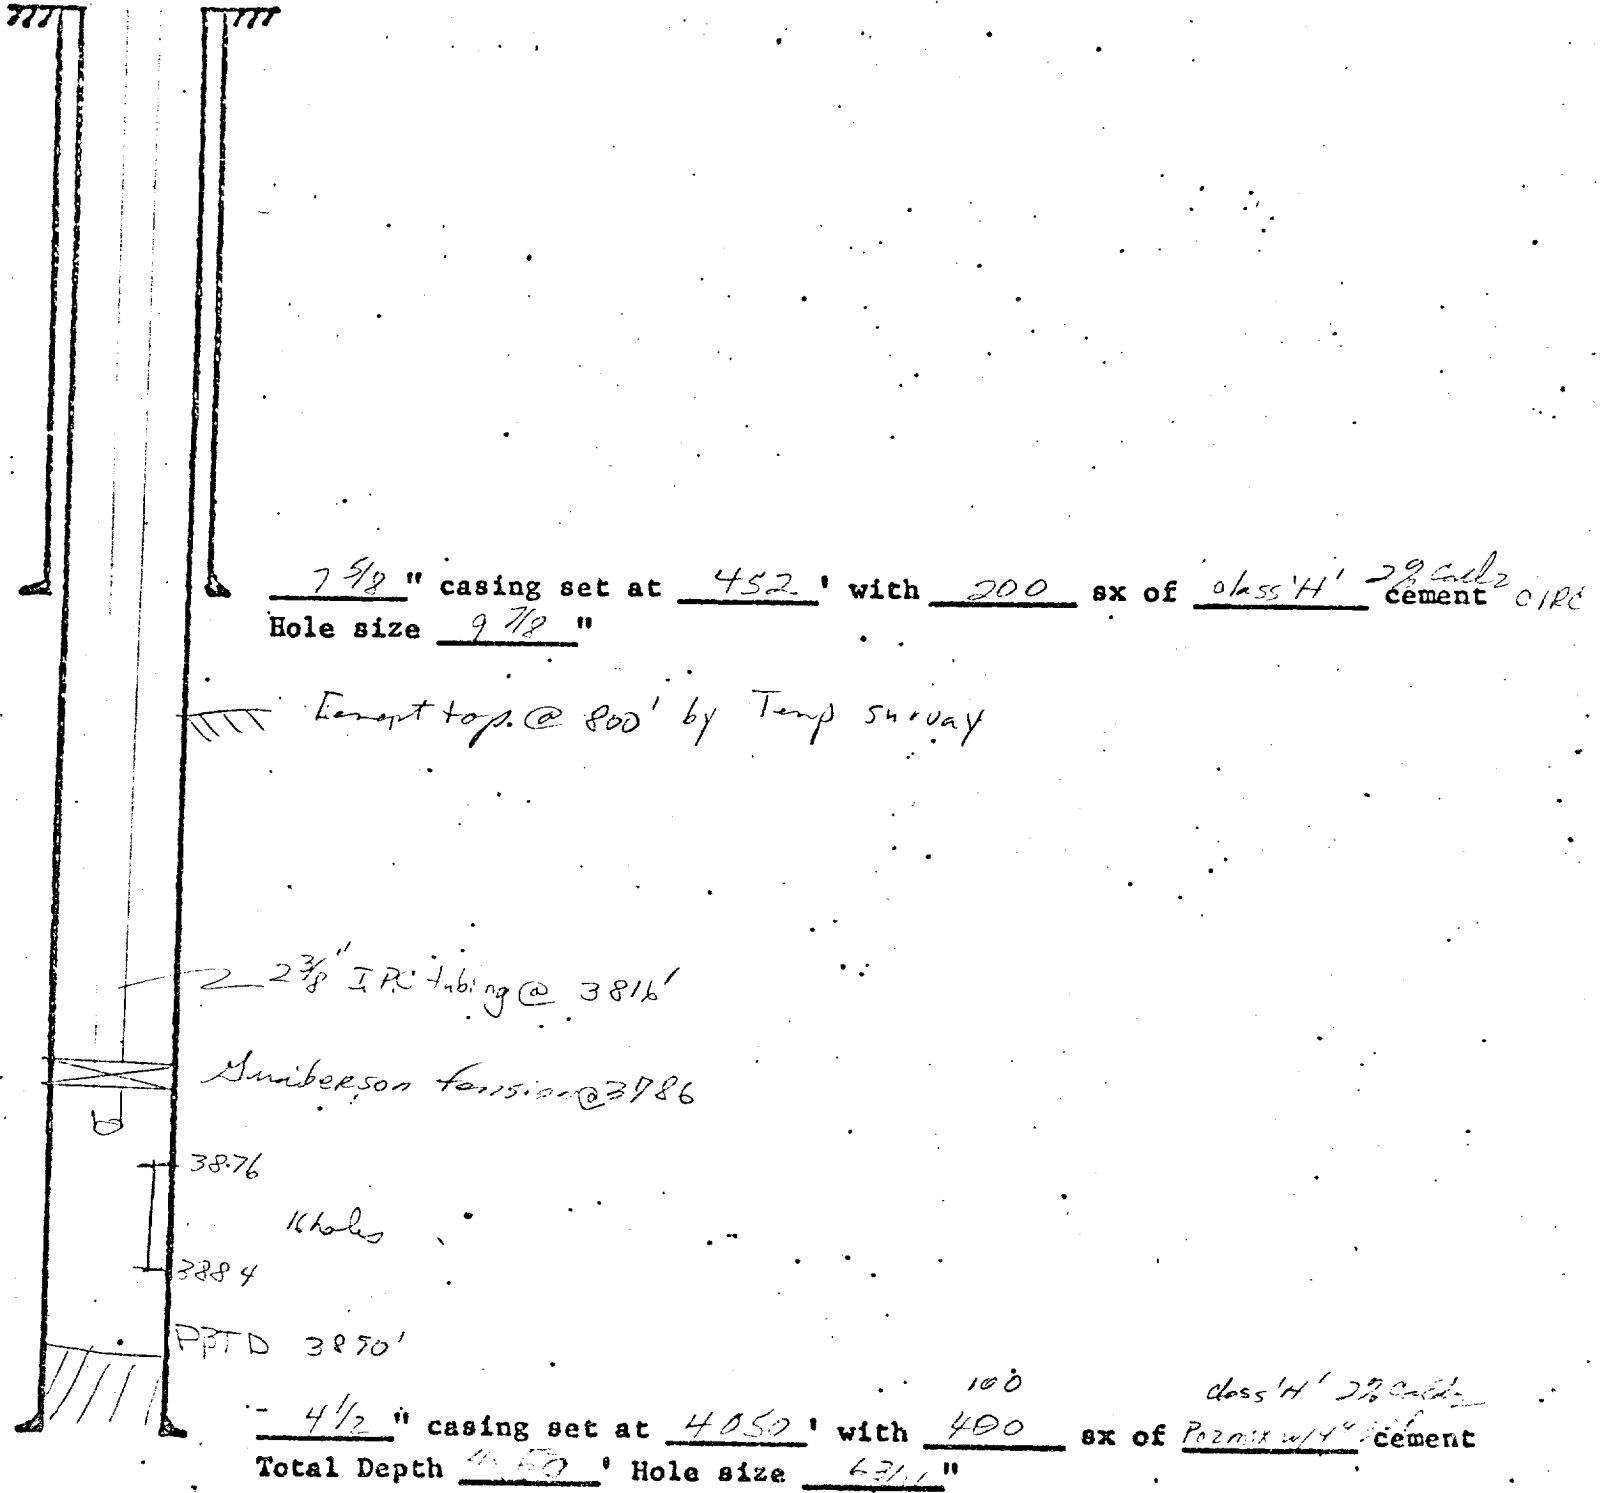 7 5/8 " casing set at 452 ' with 200 sx of class 'H' 2% CaCl2 cement CIRC
Hole size 9 7/8 "
top @ 800' by Temp survay
2 3/8" IPC tubing @ 3816'
tension @ 3786
3876
16 holes
3884
PBTD 3890'
100 class 'H' 2% CaCl2
4 1/2 " casing set at 4050 ' with 400 sx of Pozmix w/4% cement
Total Depth ' Hole size "